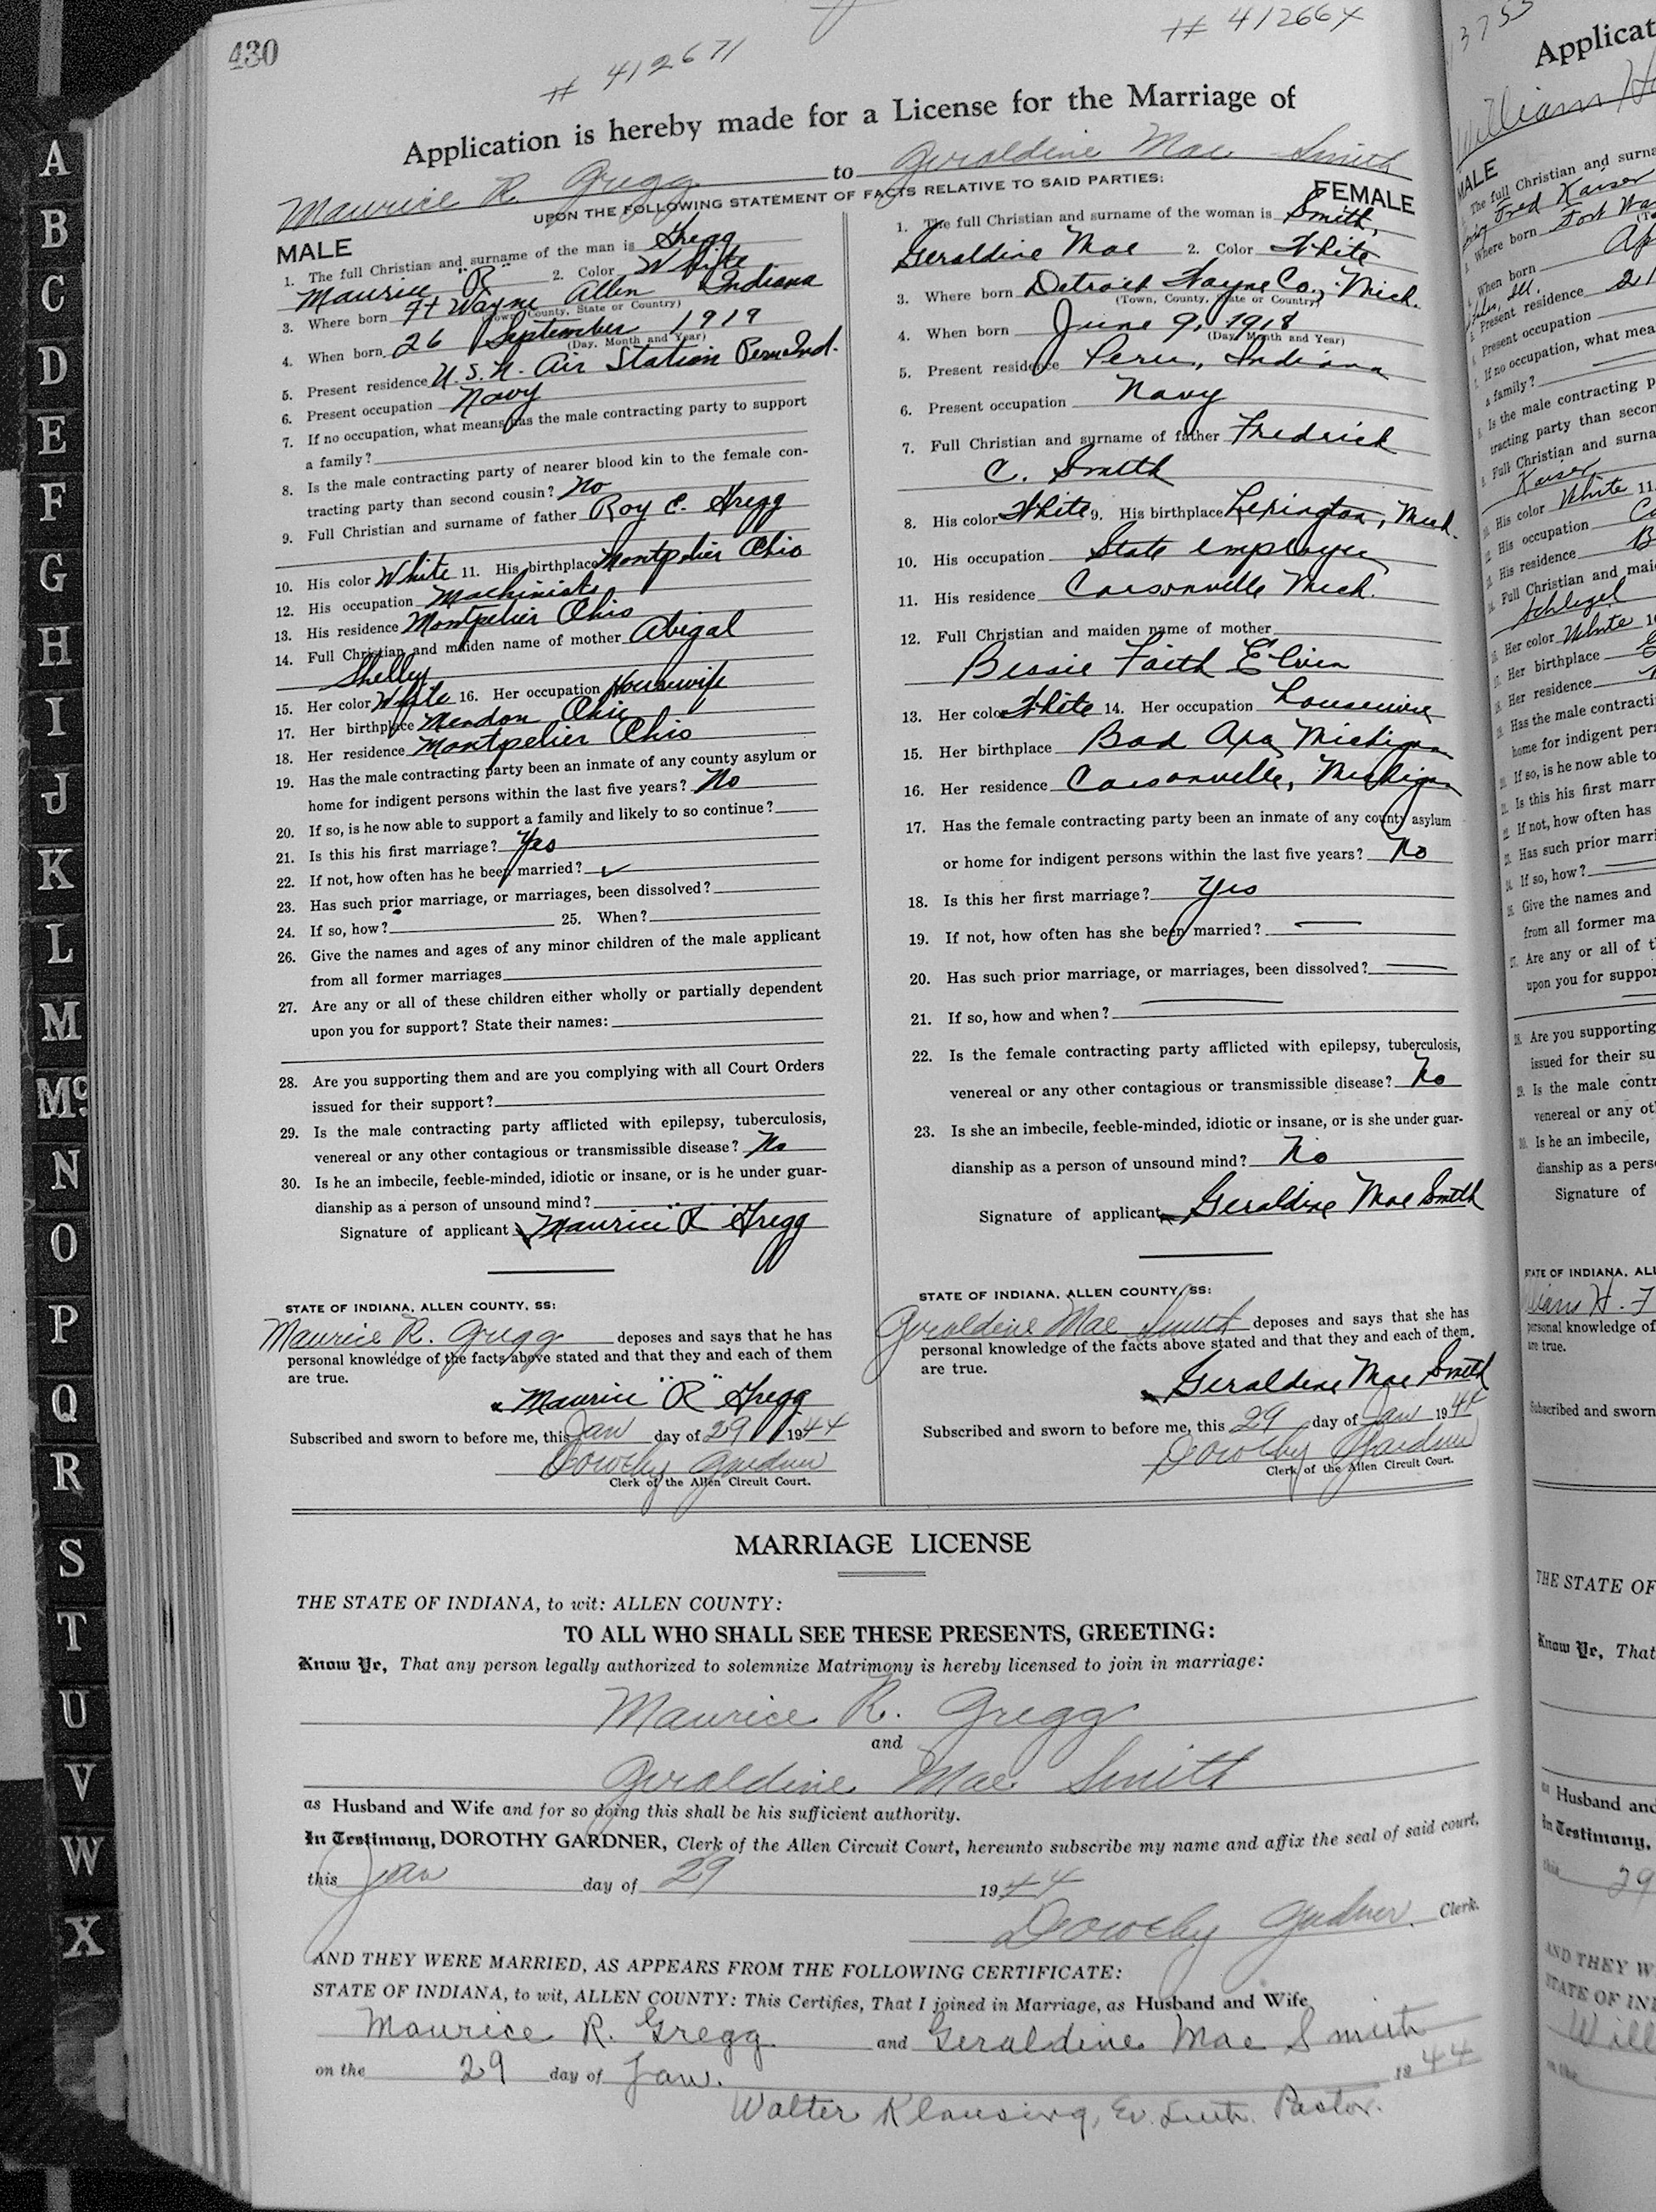 430
# 412671
# 412664
Application is hereby made for a License for the Marriage of
Maurice R. Gregg to Geraldine Mae Smith
UPON THE FOLLOWING STATEMENT OF FACTS RELATIVE TO SAID PARTIES:
MALE
1. The full Christian and surname of the man is Gregg
Maurice "R" 2. Color White
3. Where born Ft Wayne Allen Indiana
(Town, County, State or Country)
4. When born 26 September 1919
(Day, Month and Year)
5. Present residence U.S.N. Air Station Peru Ind.
6. Present occupation Navy
7. If no occupation, what means has the male contracting party to support
a family?
8. Is the male contracting party of nearer blood kin to the female con-
tracting party than second cousin? No
9. Full Christian and surname of father Roy E. Gregg
10. His color White 11. His birthplace Montpelier Ohio
12. His occupation Machinist
13. His residence Montpelier Ohio
14. Full Christian and maiden name of mother Abigal
Shelley
15. Her color White 16. Her occupation Housewife
17. Her birthplace Mendon Ohio
18. Her residence Montpelier Ohio
19. Has the male contracting party been an inmate of any county asylum or
home for indigent persons within the last five years? No
20. If so, is he now able to support a family and likely to so continue?
21. Is this his first marriage? Yes
22. If not, how often has he been married? ✓
23. Has such prior marriage, or marriages, been dissolved?
24. If so, how? 25. When?
26. Give the names and ages of any minor children of the male applicant
from all former marriages
27. Are any or all of these children either wholly or partially dependent
upon you for support? State their names:
28. Are you supporting them and are you complying with all Court Orders
issued for their support?
29. Is the male contracting party afflicted with epilepsy, tuberculosis,
venereal or any other contagious or transmissible disease? No
30. Is he an imbecile, feeble-minded, idiotic or insane, or is he under guar-
dianship as a person of unsound mind?
Signature of applicant Maurice "R" Gregg
STATE OF INDIANA, ALLEN COUNTY, SS:
Maurice R. Gregg deposes and says that he has
personal knowledge of the facts above stated and that they and each of them
are true.
Maurice "R" Gregg
Subscribed and sworn to before me, this Jan day of 29 1944
Dorothy Gardner
Clerk of the Allen Circuit Court.
FEMALE
1. The full Christian and surname of the woman is Smith,
Geraldine Mae 2. Color White
3. Where born Detroit Wayne Co., Mich.
(Town, County, State or Country)
4. When born June 9, 1918
(Day, Month and Year)
5. Present residence Peru, Indiana
6. Present occupation Navy
7. Full Christian and surname of father Fredrick
C. Smith
8. His color White 9. His birthplace Lexington, Mich.
10. His occupation State employee
11. His residence Carsonville Mich.
12. Full Christian and maiden name of mother
Bessie Faith
13. Her color White 14. Her occupation Housewife
15. Her birthplace Bad Axe Michigan
16. Her residence Carsonville, Michigan
17. Has the female contracting party been an inmate of any county asylum
or home for indigent persons within the last five years? No
18. Is this her first marriage? Yes
19. If not, how often has she been married?
20. Has such prior marriage, or marriages, been dissolved?
21. If so, how and when?
22. Is the female contracting party afflicted with epilepsy, tuberculosis,
venereal or any other contagious or transmissible disease? No
23. Is she an imbecile, feeble-minded, idiotic or insane, or is she under guar-
dianship as a person of unsound mind? No
Signature of applicant Geraldine Mae Smith
STATE OF INDIANA, ALLEN COUNTY, SS:
Geraldine Mae Smith deposes and says that she has
personal knowledge of the facts above stated and that they and each of them
are true.
Geraldine Mae Smith
Subscribed and sworn to before me, this 29 day of Jan 1944
Dorothy Gardner
Clerk of the Allen Circuit Court.
MARRIAGE LICENSE
THE STATE OF INDIANA, to wit: ALLEN COUNTY:
TO ALL WHO SHALL SEE THESE PRESENTS, GREETING:
Know Ye, That any person legally authorized to solemnize Matrimony is hereby licensed to join in marriage:
Maurice R. Gregg
and
Geraldine Mae Smith
as Husband and Wife and for so doing this shall be his sufficient authority.
In Testimony, DOROTHY GARDNER, Clerk of the Allen Circuit Court, hereunto subscribe my name and affix the seal of said court,
this Jan day of 29 1944
Dorothy Gardner Clerk.
AND THEY WERE MARRIED, AS APPEARS FROM THE FOLLOWING CERTIFICATE:
STATE OF INDIANA, to wit, ALLEN COUNTY: This Certifies, That I joined in Marriage, as Husband and Wife
Maurice R. Gregg and Geraldine Mae Smith
on the 29 day of Jan. 1944
Walter Klausing, Ev. Luth. Pastor.
A
B
C
D
E
F
G
H
I
J
K
L
M
Mc
N
O
P
Q
R
S
T
U
V
W
X